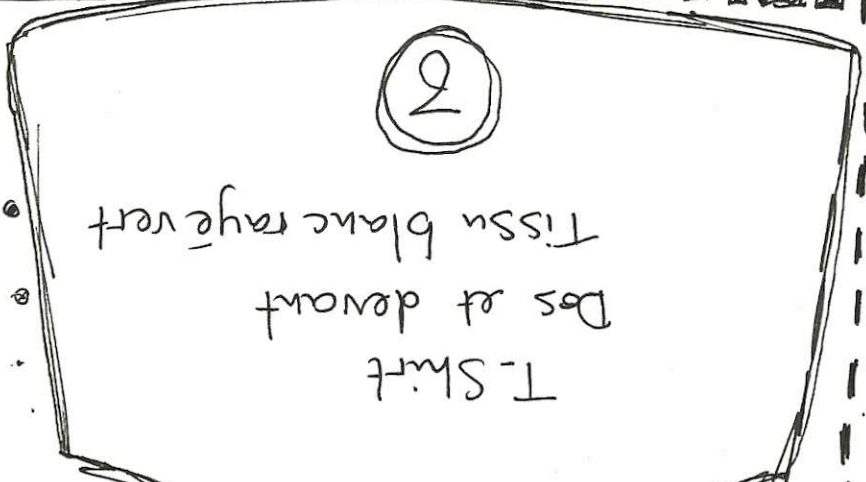 T-Shirt
Dos et devant
Tissu blanc rayé vert
2